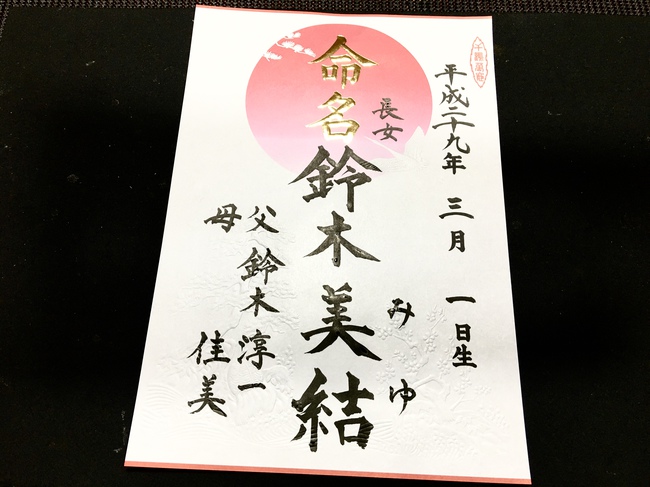 平成二十九年 三月 一日生
長女
命名 鈴木美結
みゆ
父 鈴木 淳一
母 佳美